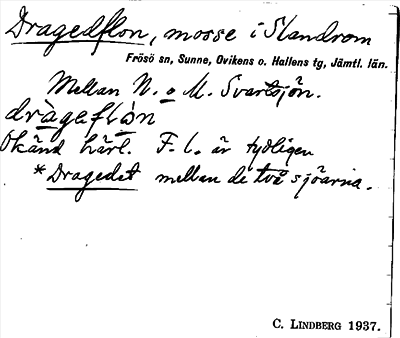 Dragedflon, mosse i Slandrom
Frösö sn, Sunne, Ovikens o. Hallens tg, Jämtl. län.
Mellan N. o M. Svartsjön.
dràgeflɔ̀n
Okänd härl. F. l. är tydligen
*Dragedet mellan de två sjöarna.
C. LINDBERG 1937.